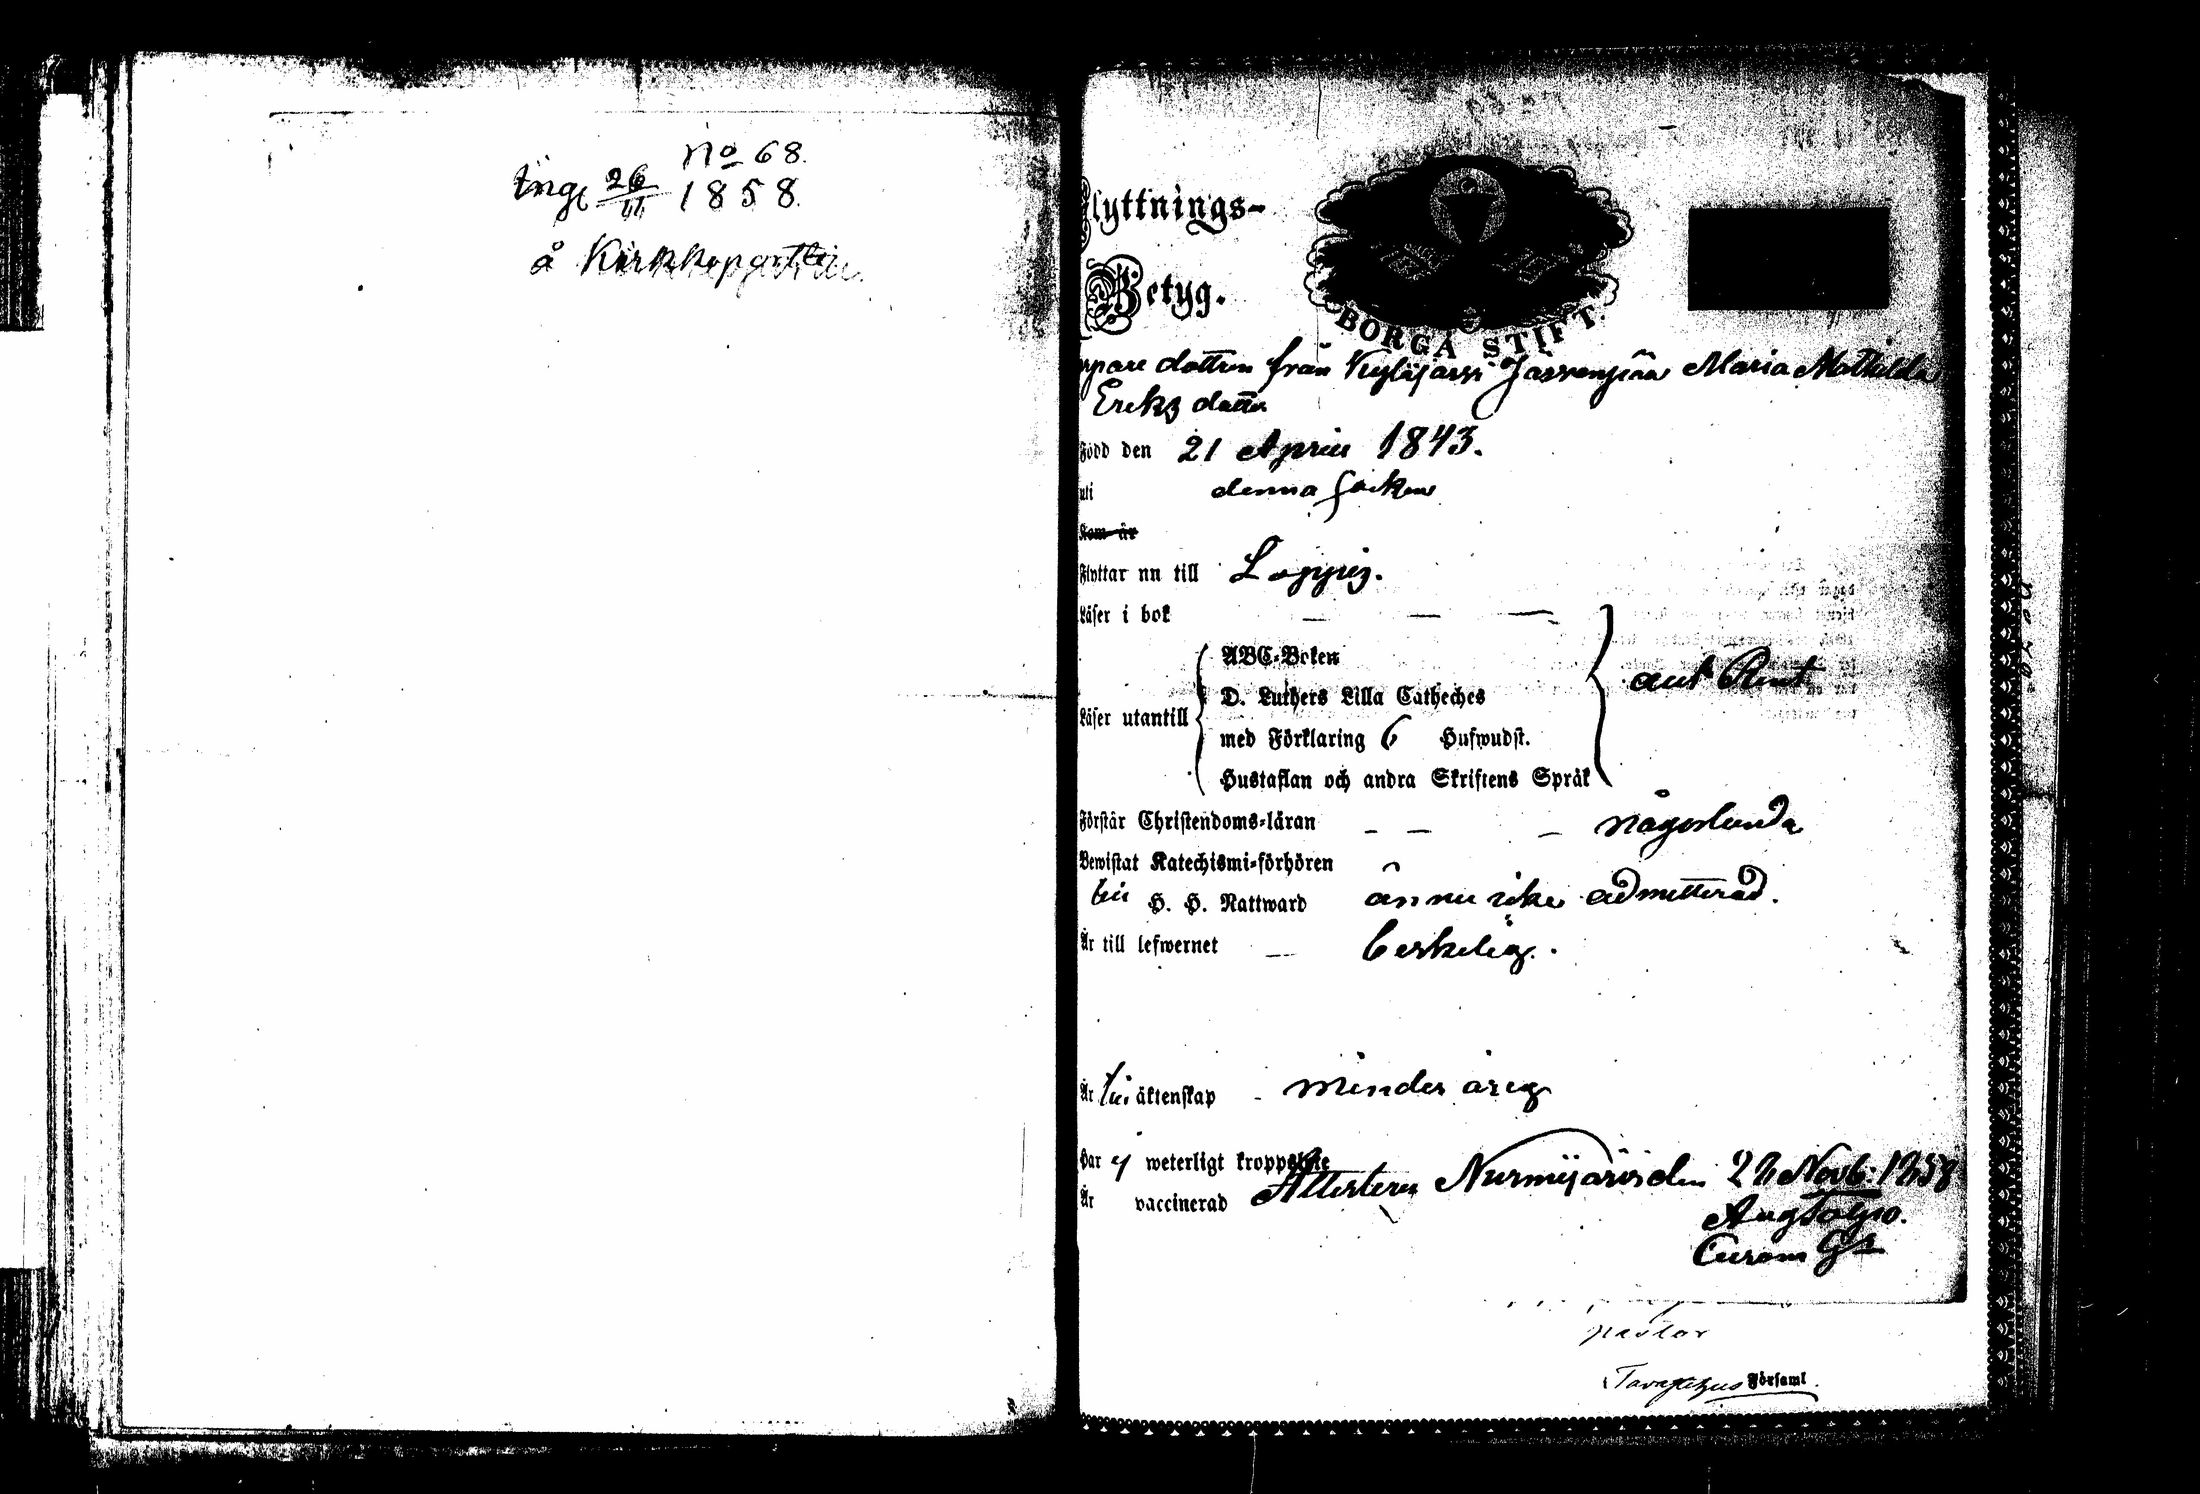 No 68.
Ing 26/11 1858.
å Kirkkopartti
Flyttnings-
Betyg.
BORGÅ STIFT.
dottren från Kyläjärvi Maria Mathilda
Eriks dotter
Född den 21 April 1843.
uti denna Socken
Kom år
Flyttar nu till Loppis.
Läser i bok — — —
ABC-Boken
D. Luthers Lilla Catheches
Läser utantill
med Förklaring 6 Hufwudst.
Hustaflan och andra Skriftens Språk
ant
Förstår Christendoms-läran — — — någorlunda
Bewistat Katechismi-förhören
till H. H. Nattward ännu icke admitterad.
Är till lefwernet — beskelig.
Är till äktenskap - minder årig
Har ej weterligt kroppslyte
Är vaccinerad Attesterar Nurmijärvi den 22 Novb: 1858
Aug
pastor
Tavastehus Församl.